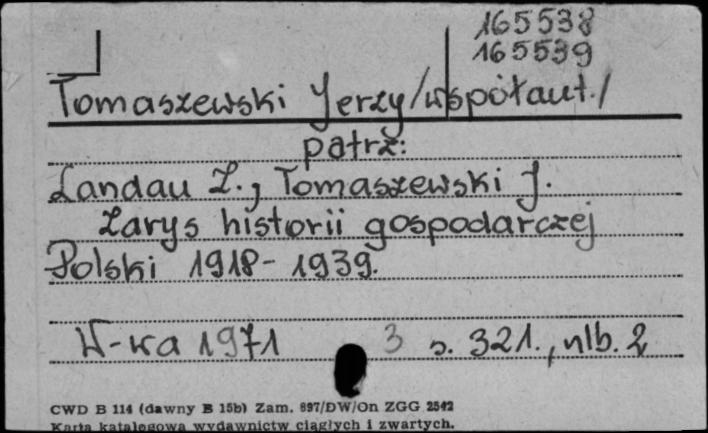 165538
165539
Tomaszewski Jerzy /współaut./
patrz:
Landau Z., Tomaszewski J.
Zarys historii gospodarczej
Polski 1918-1939.
W-wa 1971 3 s. 321., nlb. 2
CWD B 114 (dawny B 15b) Zam. 897/DW/On ZGG 2542
Karta katalogowa wydawnictw ciągłych i zwartych.